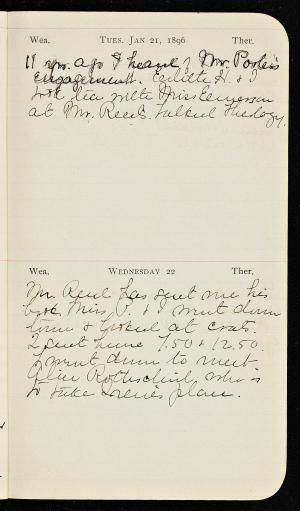 Wea. TUES. JAN 21, 1896 Ther.
11 yrs. ago I heard of Mr. Poole's
Engagement. Edith H. & I
took tea with Miss Emerson
at Mr. Reed's. Talked theology.
Wea. WEDNESDAY 22 Ther.
Mr. Reed has sent me his
book. Miss P. & I went down
town & looked at coats.
2 sent home 7.50 & 12.50.
I went down to meet
Alice Rothschild, who is
to take place.